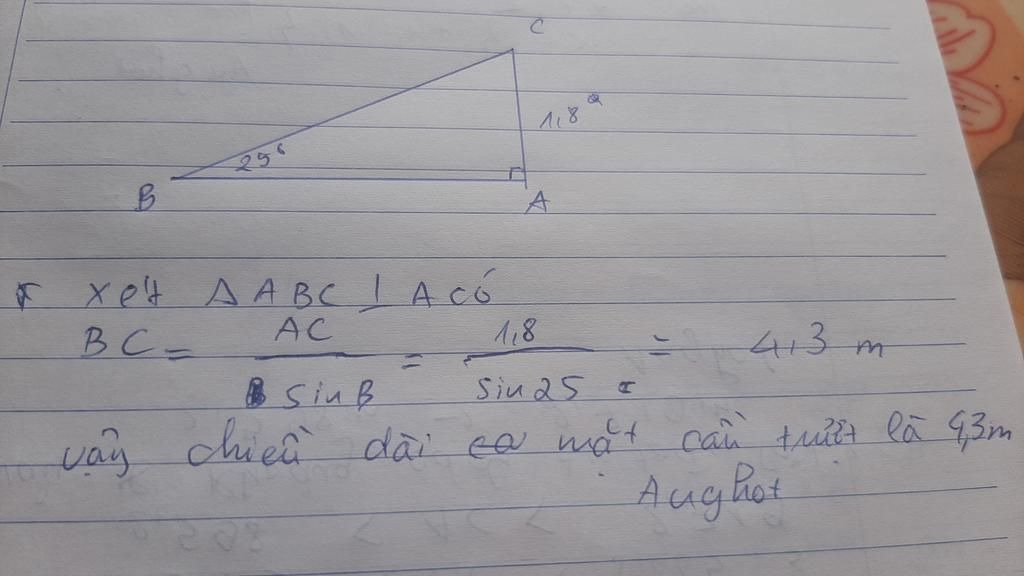 C
1,8
25°
B
A
Xét Δ ABC ⊥ A có
BC = AC / sin B = 1,8 / sin 25 = 4,3 m
vậy chiều dài của mặt cầu trượt là 4,3m